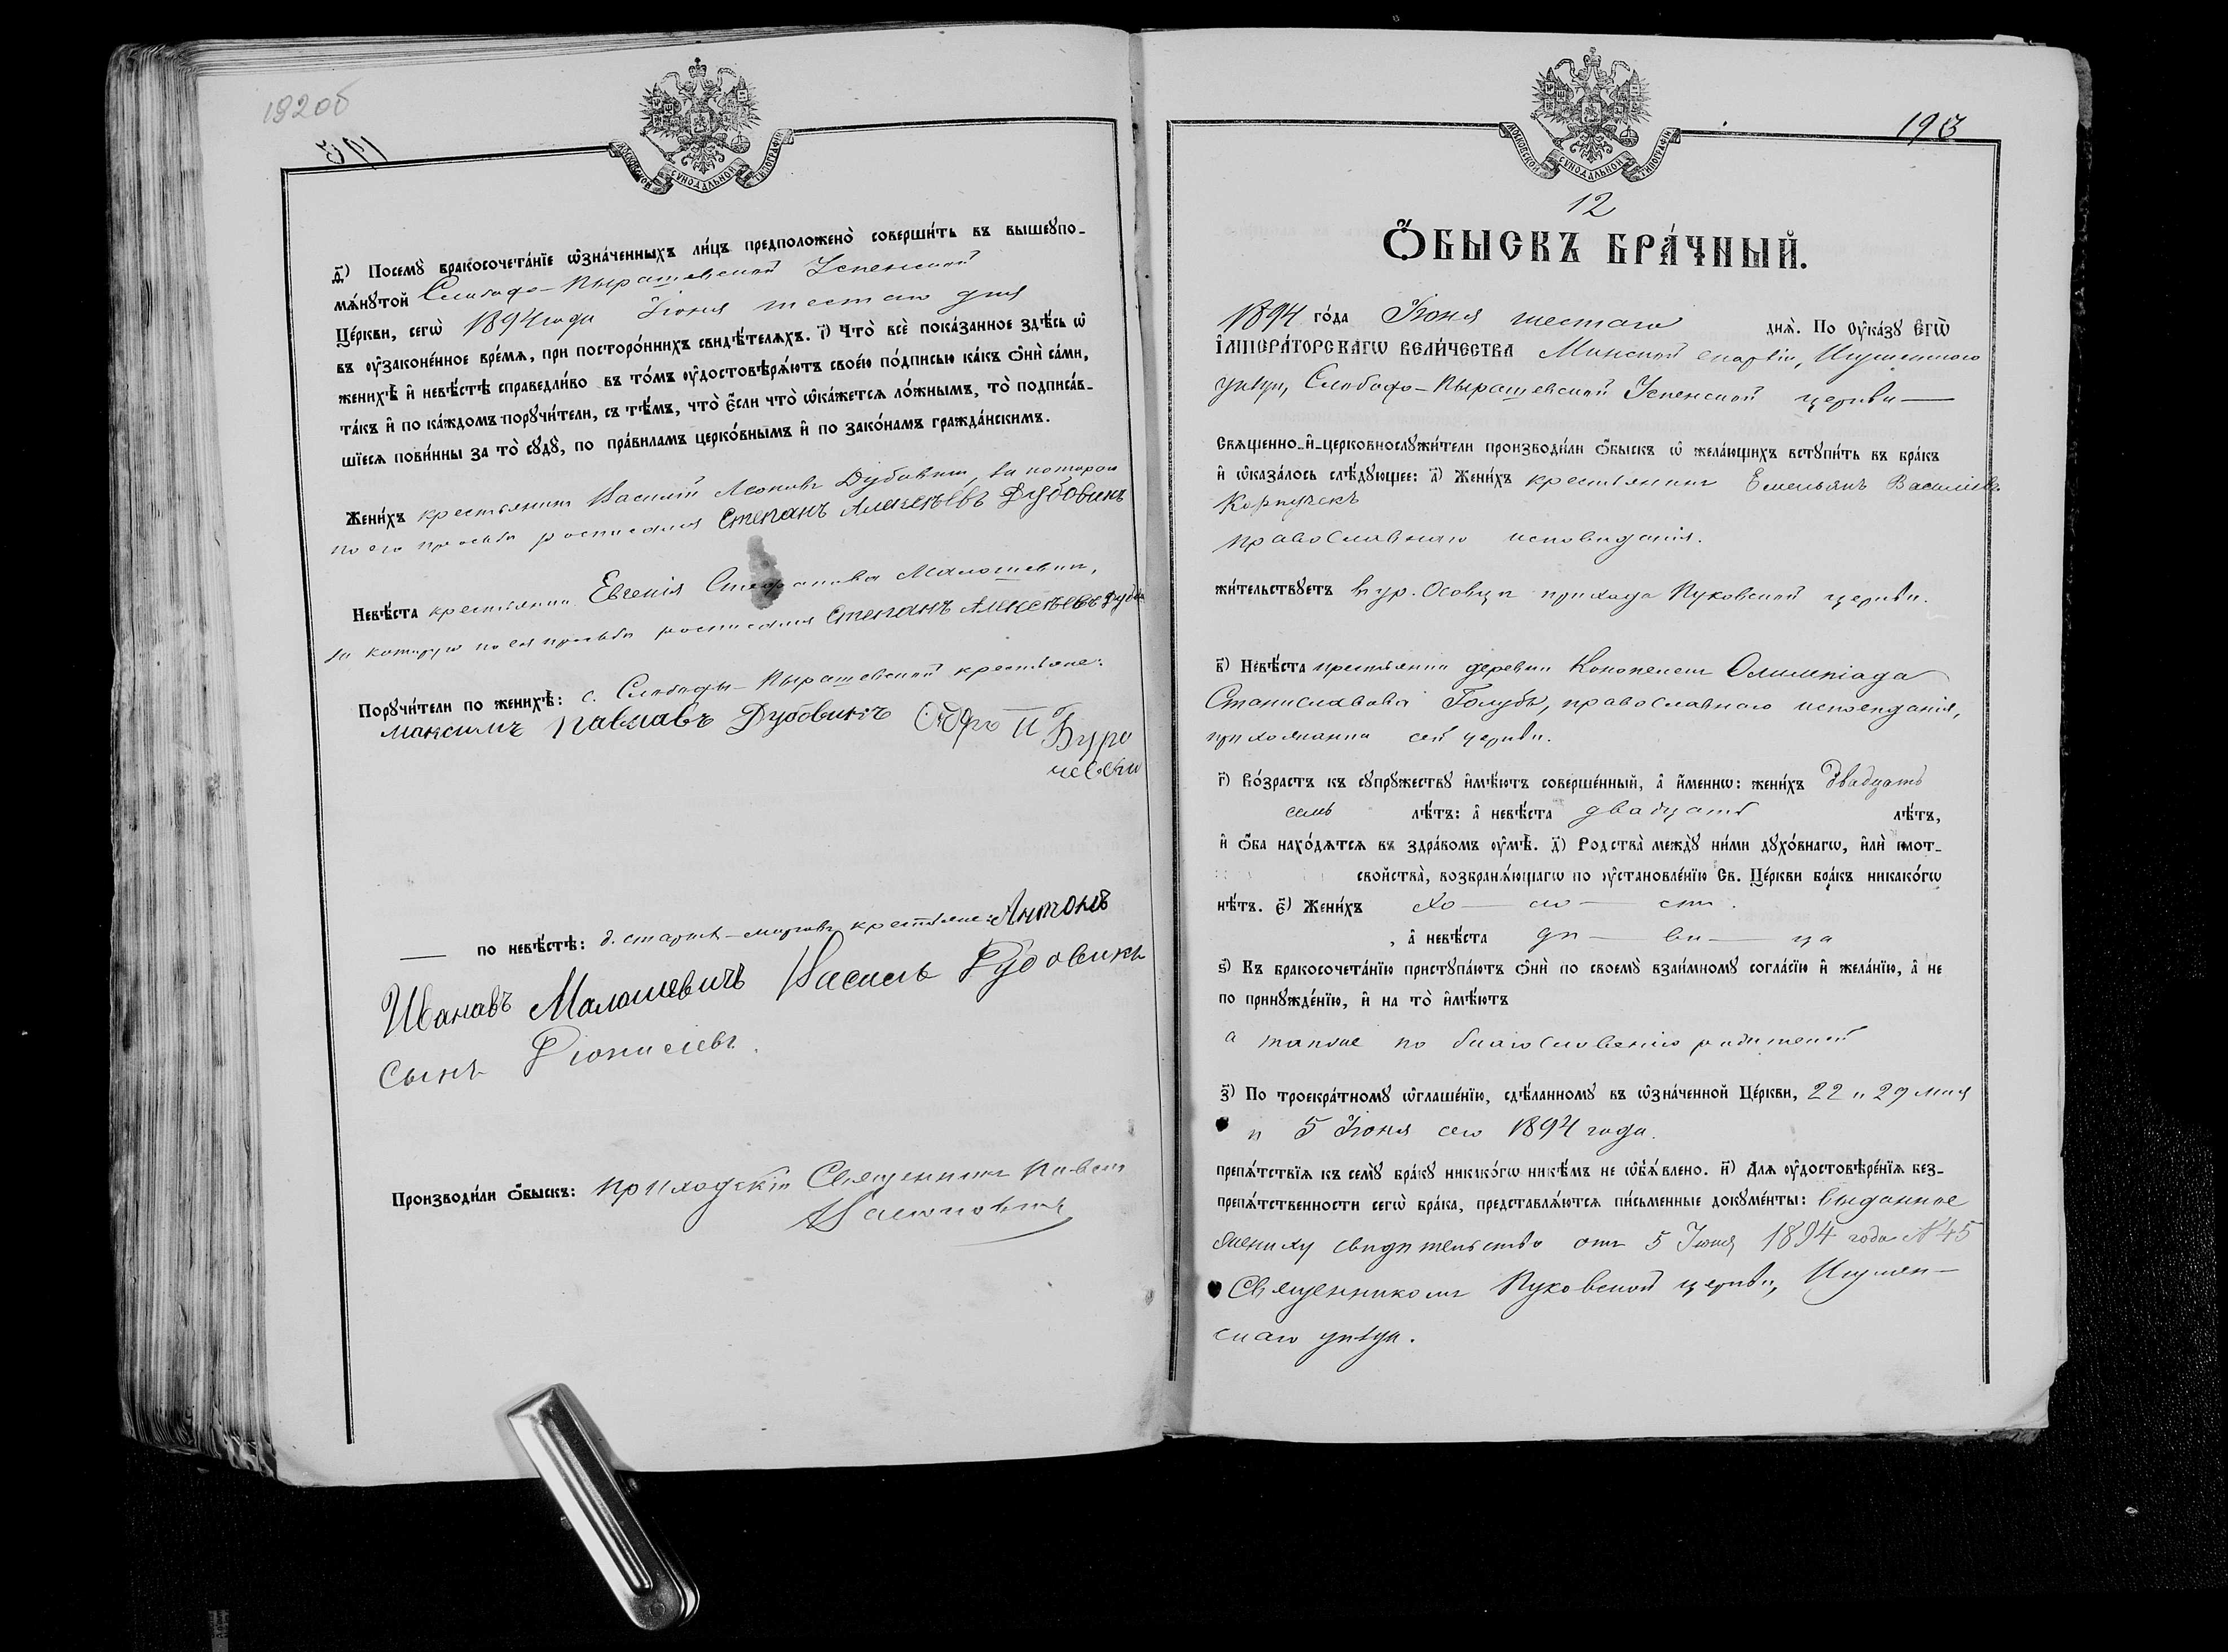 192об
193
МОСКОВСКОЙ СУНОДАЛЬНОЙ ТИПОГРАФІИ
д҃) Посемꙋ̀ бракосочета́нїе ѡ҆зна́ченныхъ ли́цъ предположено̀ соверши́ть въ вышеꙋпо-
мѧ́нꙋтой Слободо-Пырашевской Успенской
Це́ркви, сегѡ̀ 1894 года Іюня шестаго дня
въ ᲂу҆законе́нное вре́мѧ, при посторо́ннихъ свидѣ́телѧхъ. і҃) Что̀ всѐ пока́занное здѣ́сь ѡ҆
женихѣ̀ и҆ невѣ́стѣ справедли́во въ то́мъ ᲂу҆достовѣрѧ́ютъ свое́ю по́дписью ка́къ ѻ҆нѝ са́ми,
та́къ и҆ по ка́ждомъ порꙋчи́тели, съ тѣ́мъ, что̀ є҆́сли что̀ ѡ҆ка́жетсѧ ло́жнымъ, то̀ подписа́в-
шїесѧ пови́нны за то̀ сꙋдꙋ̀, по пра́виламъ церко́внымъ и҆ по зако́намъ гражда́нскимъ.
Жени́хъ крестьянинъ Василій Леоновъ Дубовикъ, за котораго
по его просьбѣ росписался Степанъ Алексѣевъ Дубовикъ
Невѣ́ста крестьянка Евгенія Стефанова Малашевичъ,
за которую по ея просьбѣ росписался Степанъ Алексѣевъ
Порꙋчи́тели по женихѣ̀: с. Слободы-Пырашевской крестьяне:
Максимъ Павлавъ Дубовикъ
по невѣ́стѣ: крестьяне: Антонъ
Ивановъ Малашевичъ Василь Дубовикъ
Сынъ
Производи́ли ѻ҆́быскъ: приходскій Священникъ Павелъ
193
МОСКОВСКОЙ СУНОДАЛЬНОЙ ТИПОГРАФІИ
12
Ѻ҆́БЫСКЪ БРА́ЧНЫЙ.
1894 го́да Іюня шестаго днѧ̀. По ᲂу҆ка́зꙋ Є҆гѡ̀
І҆мпера́торскагѡ Вели́чества Минской епархіи, Игуменскаго
уѣзда, Слободо-Пырашевской Успенской церкви
Свѧщенно-и҆-церковнослꙋжи́тели производи́ли ѻ҆́быскъ ѡ҆ жела́ющихъ встꙋпи́ть въ бра́къ
и҆ ѡ҆каза́лось слѣ́дꙋющее: а҃) Жени́хъ крестьянинъ Емельянъ Васильевъ
православнаго исповѣданія.
жи́тельствꙋетъ въ ур. Осовцѣ прихода Пуковской церкви.
в҃) Невѣ́ста крестьянка деревни Олимпіада
Станиславова Голубъ, православнаго исповѣданія,
прихожанка сей церкви.
г҃) Во́зрастъ къ сꙋпрꙋ́жествꙋ и҆мѣ́ютъ соверше́нный, а҆ и҆́меннѡ: жени́хъ двадцать
семь лѣ́тъ: а҆ невѣ́ста двадцать лѣ́тъ,
и҆ ѻ҆́ба нахо́дѧтсѧ въ здра́вомъ ᲂу҆мѣ̀. д҃) Родства̀ междꙋ̀ ни́ми дꙋхо́внагѡ, и҆лѝ плот-
свойства̀, возбранѧ́ющагѡ по ᲂу҆становле́нїю Св. Це́ркви бра́къ никако́гѡ
нѣ́тъ. є҃) Жени́хъ хо — ло — стъ.
, а҆ невѣ́ста дѣ — ви — ца
ѕ҃) Къ бракосочета́нїю пристꙋпа́ютъ ѻ҆нѝ по своемꙋ̀ взаи́мномꙋ согла́сїю и҆ жела́нїю, а҆ не
по принꙋжде́нїю, и҆ на то̀ и҆мѣ́ютъ
а также по благословенію родителей
з҃) По троекра́тномꙋ ѡ҆глаше́нїю, сдѣ́ланномꙋ въ ѡ҆зна́ченной Це́ркви, 22 и 29 мая
и 5 Іюня сего 1894 года.
препѧ́тствїѧ къ семꙋ̀ бра́кꙋ никако́гѡ никѣ́мъ не ѡ҆б̾ѧ́влено. и҃) Длѧ ᲂу҆достовѣре́нїѧ без-
препѧ́тственности сегѡ̀ бра́ка, представлѧ́ютсѧ пи́сьменные докꙋме́нты: выданное
жениху свидѣтельство отъ 5 Іюня 1894 года №45
Священникомъ Пуковской церкви, Игумен-
скаго уѣзда.